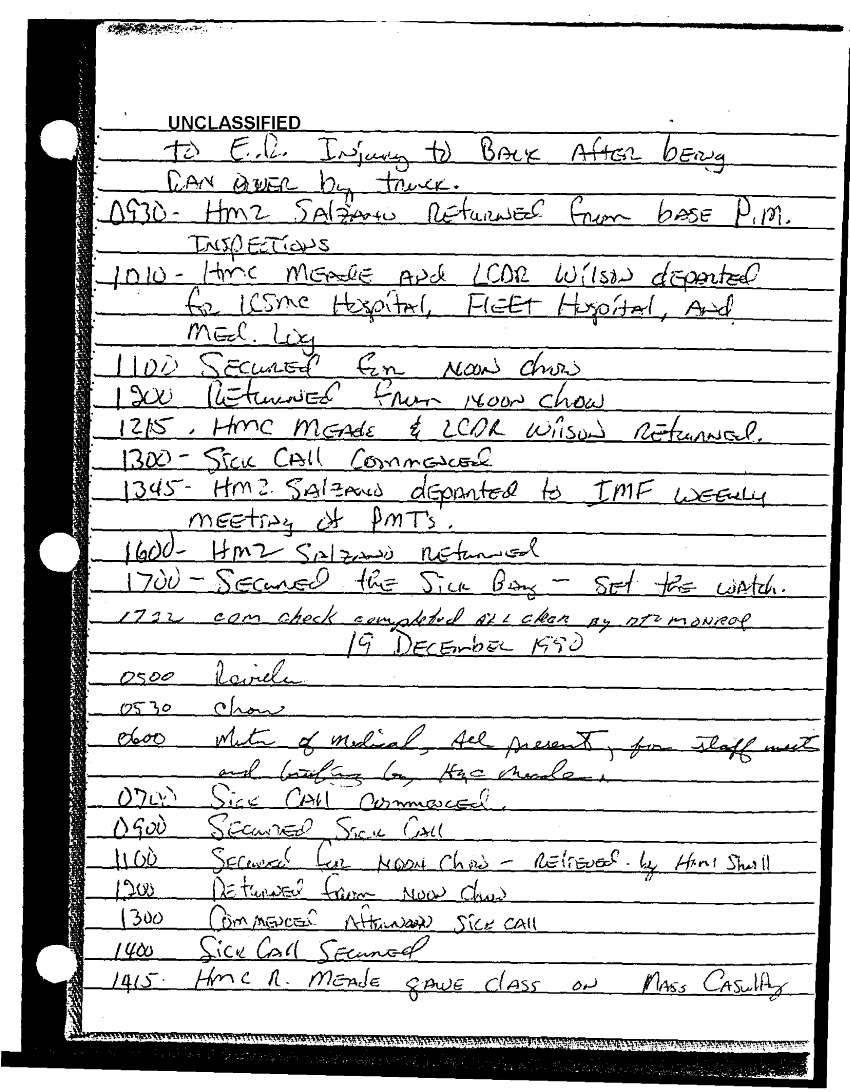 UNCLASSIFIED
to E.R. Injury to BACK AFTER being
RAN OVER by truck.
0930- HM2 SALZANO RETURNED from BASE P.M.
INSPECTIONS
1010- HMC MEADE AND LCDR WILSON departed
for ICSMC Hospital, FLEET Hospital, And
MED. Log
1100 SECURED for NOON Chow
1200 RETURNED From NOON CHOW
1215. HMC MEADE & LCDR WILSON RETURNED.
1300- SICK CALL COMMENCED
1345- HM2. SALZANO departed to IMF WEEKLY
MEETING of PMT's.
1600- HM2 SALZANO RETURNED
1700- SECURED the SICK Bay - SET the WATCH.
1722 com check completed ALL clear By DT2 MONROE
19 DECEMBER 1990
0500 Reveille
0530 Chow
0600 Muster of Medical, All present, for staff meet
and briefing by HMC Meade.
0700 SICK CALL Commenced.
0900 SECURED SICK CALL
1100 SECURED for NOON Chow - RELIEVED by HM1 Shull
1200 RETURNED from NOON Chow
1300 COMMENCED AFTERNOON SICK CALL
1400 SICK CALL SECURED
1415- HMC R. MEADE GAVE CLASS ON MASS CASULTY